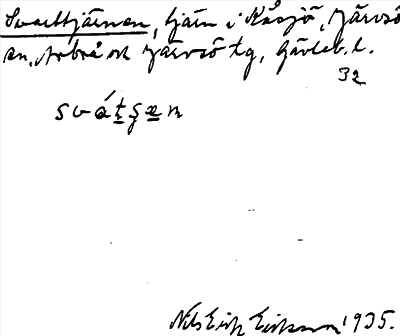 Svarttjärnen, tjärn i Kåsjö, Järvsö
sn, Arbrå och Järvsö tg, Gävleb. l.
32
svát̲ʂæ̲n
Nils Erik Eriksson 1935.